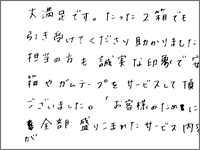 大満足です。たった2箱でも
引き受けてくださり助かりました
担当の方も誠実な印象で安
箱やガムテープをサービスして頂
ございました。「お客様のために
全部盛りこまれたサービス内容
が